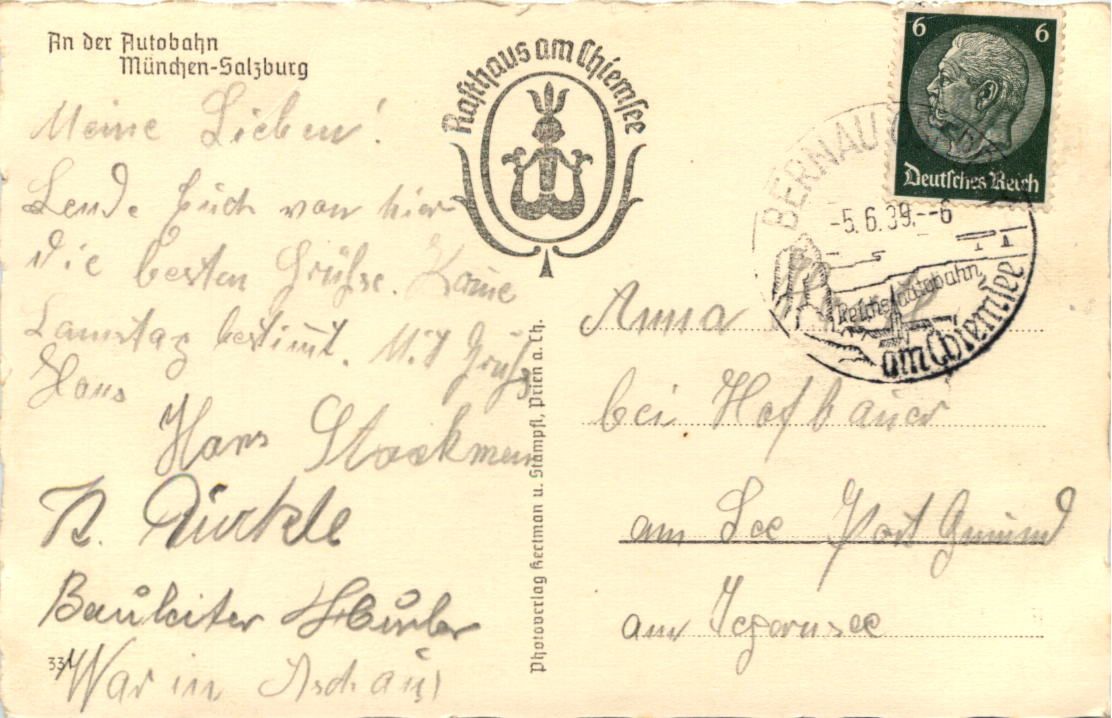 An der Autobahn
München-Salzburg
Rasthaus am Chiemsee
Meine Lieben!
Sende Euch von hier
die besten Grüße. Kome
Samstag bestimt. Mit Gruß
Hans
Hans
Bauleiter
War in Aschau!
331
Photoverlag Kectman u. Stampfl, Prien a. Ch.
6 6
Deutsches Reich
BERNAU
-5.6.39.--6
Reichsautobahn
am Chiemsee
Anna
bei Hofbauer
am See Post Gmund
am Tegernsee